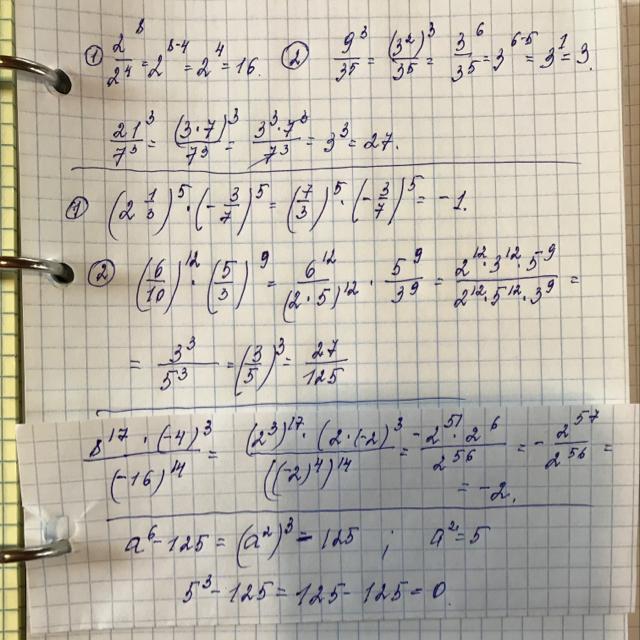 ① 2^8/2^4 = 2^(8-4) = 2^4 = 16. ② 9^3/3^5 = (3^2)^3/3^5 = 3^6/3^5 = 3^(6-5) = 3^1 = 3.
21^3/7^3 = (3·7)^3/7^3 = 3^3·7^3/7^3 = 3^3 = 27.
① (2 1/3)^5 · (-3/7)^5 = (7/3)^5 · (-3/7)^5 = -1.
② (6/10)^12 · (5/3)^9 = 6^12/(2·5)^12 · 5^9/3^9 = 2^12·3^12·5^9/2^12·5^12·3^9 =
= 3^3/5^3 = (3/5)^3 = 27/125
8^17 · (-4)^3/(-16)^14 = (2^3)^17 · (2·(-2))^3/((-2)^4)^14 = -2^51·2^6/2^56 = -2^57/2^56 =
= -2.
a^6 - 125 = (a^2)^3 - 125 ; a^2 = 5
5^3 - 125 = 125 - 125 = 0.